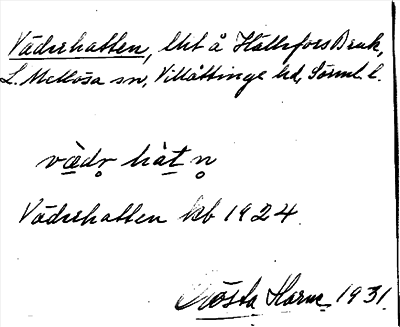 Väderhatten, lht å Hälleforss Bruk,
L. Mellösa sn, Villåttinge hd, Sörml. l.
vädr hàt n
Väderhatten kb 1924.
Gösta Harne 1931.